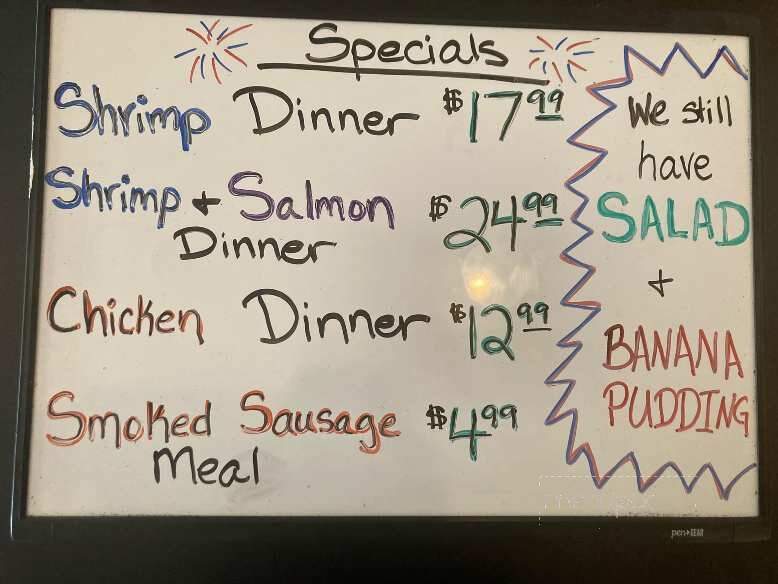 Specials
Shrimp Dinner $17.99
Shrimp + Salmon $24.99
Dinner
Chicken Dinner $12.99
Smoked Sausage $4.99
Meal
We still
have
SALAD
+
BANANA
PUDDING